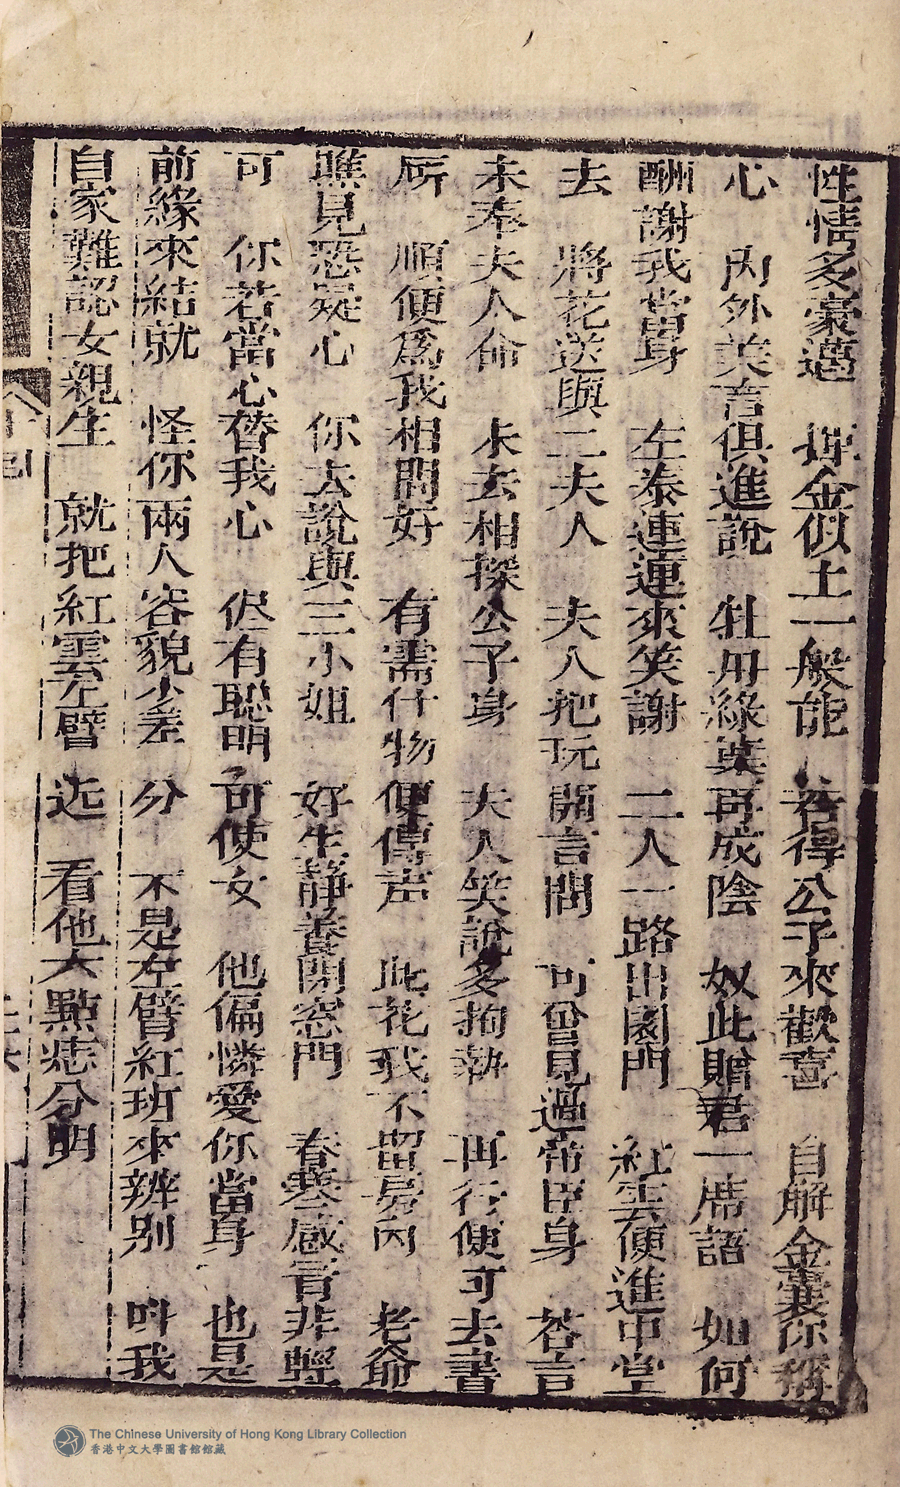 性情多豪邁　揮金似土一般能　若得公子來歡喜　自解金囊你稱
心　內外美言俱進說　牡丹綠葉再成陰　奴此贈君一席話　如何
酬謝我當身　左泰連連來笑謝　二人一路出園門　紅雲便進中堂
去　將花送與二夫人　夫人把玩開言問　可曾見過帝臣身　荅言
未奉夫人命　未去相探公子身　夫人笑說多拘執　再行便可去書
所　順便爲我相問好　有需什物便傳声　此花我不留房內　老爺
瞧見恐疑心　你去說與三小姐　好生靜養閉窓門　春寒感冒非輕
可　你若當心替我心　侭有聪明可使女　他偏憐愛你當身　也是
前緣來結就　怪你兩人容貌少差分　不是左臂紅班來辨别　呌我
自家難認女親生　就把紅雲左臂迄　看他大點痣分明
The Chinese University of Hong Kong Library Collection
香港中文大學圖書館館藏